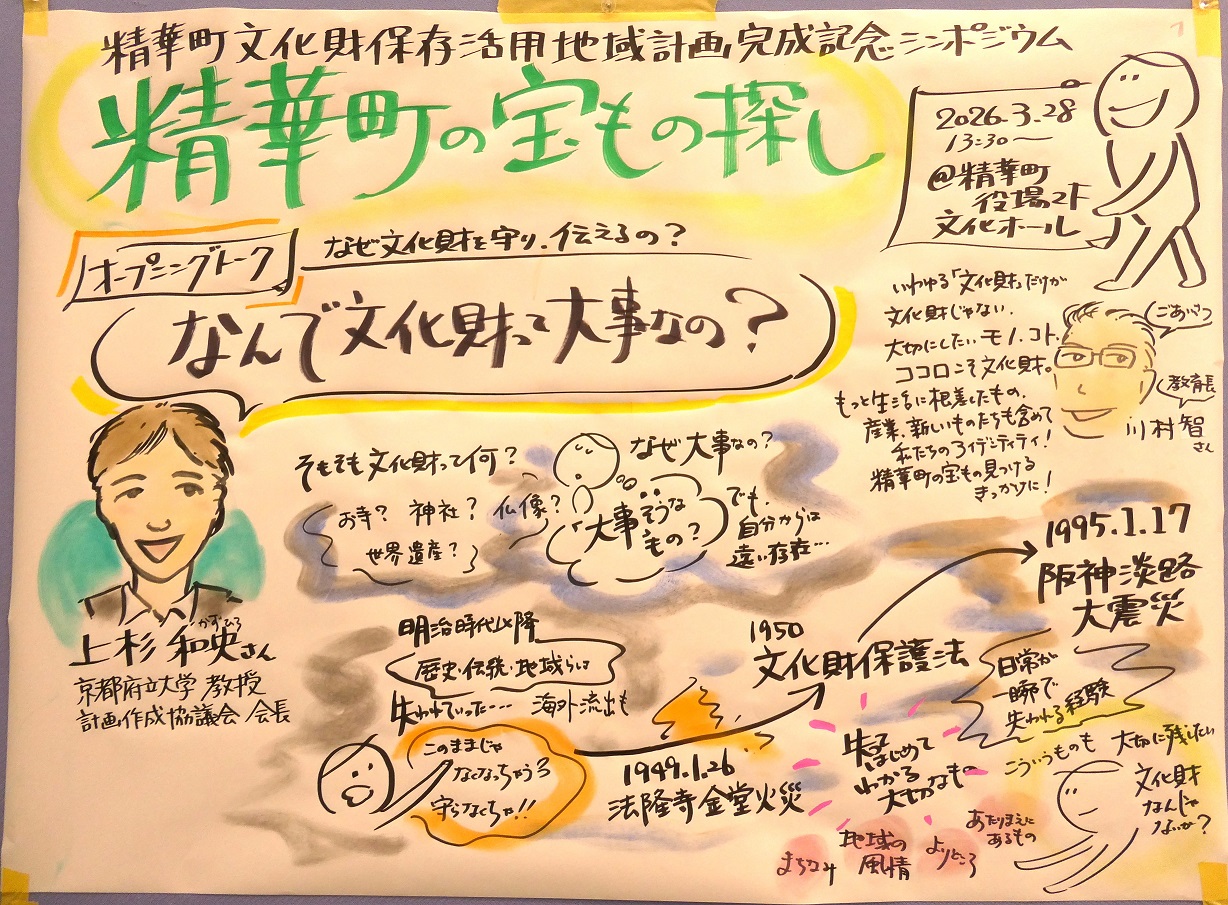 精華町文化財保存活用地域計画完成記念シンポジウム
精華町の宝もの探し
2026.3.28
13:30〜
@精華町
役場2F
文化ホール
オープニングトーク
なぜ文化財を守り、伝えるの?
なんで文化財って大事なの?
いわゆる「文化財」だけが
文化財じゃない.
大切にしたいモノ.コト.
ココロこそ文化財。
もっと生活に根差したもの、
産業、新しいものたちも含めて
私たちのアイデンティティ!
精華町の宝もの見つける
きっかけに!
ごあいさつ
教育長
川村智
さん
上杉 和史さん
かずひろ
京都府立大学 教授
計画作成協議会 会長
そもそも文化財って何?
お寺? 神社? 仏像?
世界遺産?
なぜ大事なの?
「大事そうな
もの?
でも、
自分からは
遠い存在…
明治時代以降
歴史・伝統・地域らしさ
失われていった…
海外流出も
このままじゃ
なくなっちゃう
守らなくちゃ!!
1949.1.26
法隆寺金堂火災
1950
文化財保護法
1995.1.17
阪神淡路
大震災
日常が
一瞬で
失われる経験
失って
はじめて
わかる
大切なもの
まちなみ
地域の
風情
よりどころ
あたりまえに
あるもの
こういうものも
大切に残したい
文化財
なんじゃ
ないか?